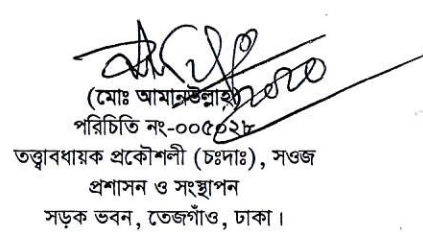 (মোঃ আমানউল্লাহ)
পরিচিতি নং-০০৫০২৮
তত্ত্বাবধায়ক প্রকৌশলী (চঃদাঃ), সওজ
প্রশাসন ও সংস্থাপন
সড়ক ভবন, তেজগাঁও, ঢাকা।